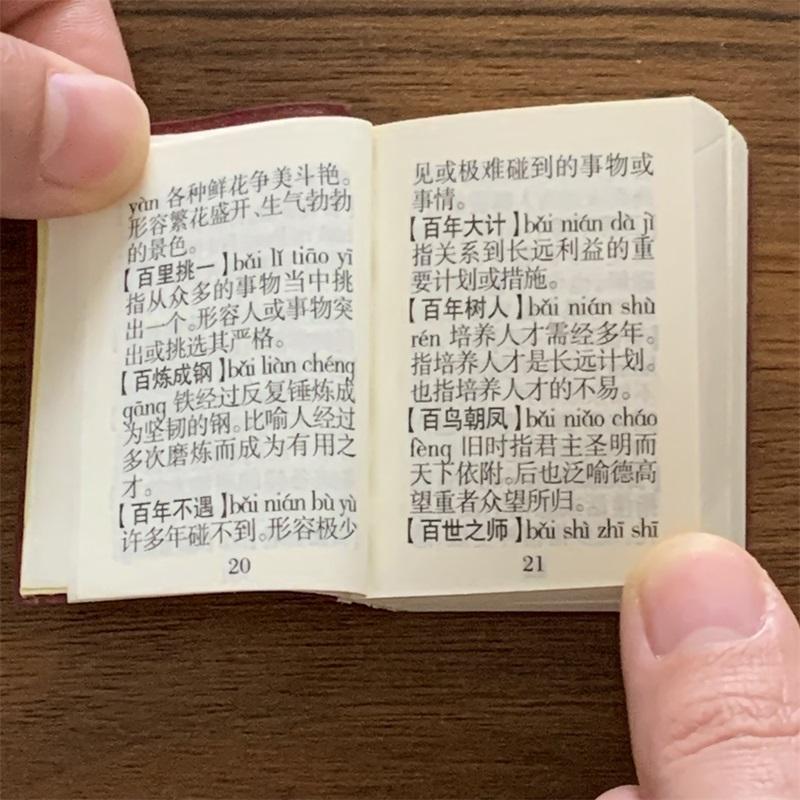 yàn 各种鲜花争美斗艳。
形容繁花盛开、生气勃勃
的景色。
【百里挑一】bǎi lǐ tiāo yī
指从众多的事物当中挑
出一个。形容人或事物突
出或挑选其严格。
【百炼成钢】bǎi liàn chéng
gāng 铁经过反复锤炼成
为坚韧的钢。比喻人经过
多次磨炼而成为有用之
才。
【百年不遇】bǎi nián bù yù
许多年碰不到。形容极少
20
见或极难碰到的事物或
事情。
【百年大计】bǎi nián dà jì
指关系到长远利益的重
要计划或措施。
【百年树人】bǎi nián shù
rén 培养人才需经多年。
指培养人才是长远计划。
也指培养人才的不易。
【百鸟朝凤】bǎi niǎo cháo
fèng 旧时指君主圣明而
天下依附。后也泛喻德高
望重者众望所归。
【百世之师】bǎi shì zhī shī
21